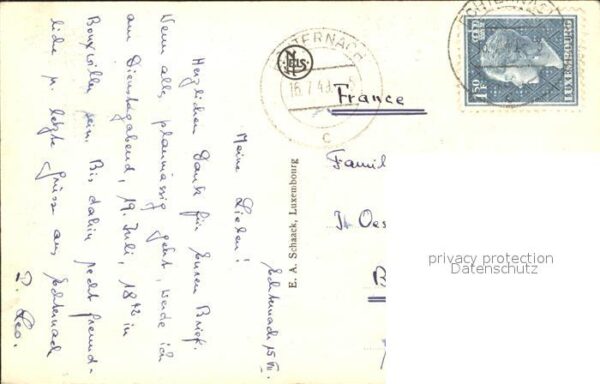 Echternach 15 VII.
Meine Lieben!
Herzlichen Dank für Euren Brief.
Wenn alles planmässig geht, werde ich
am Dienstagabend, 19. Juli, 18⁴² in
Bouxwiller sein. Bis dahin recht freund-
liche u. letzte Grüsse aus Echternach
P. Leo.
E. A. Schaack, Luxembourg
ECHTERNACH
16.7.49
C
NELS
ECHTERNACH
1.50 F
LUXEMBOURG
France
Famil
St
B
privacy protection
Datenschutz